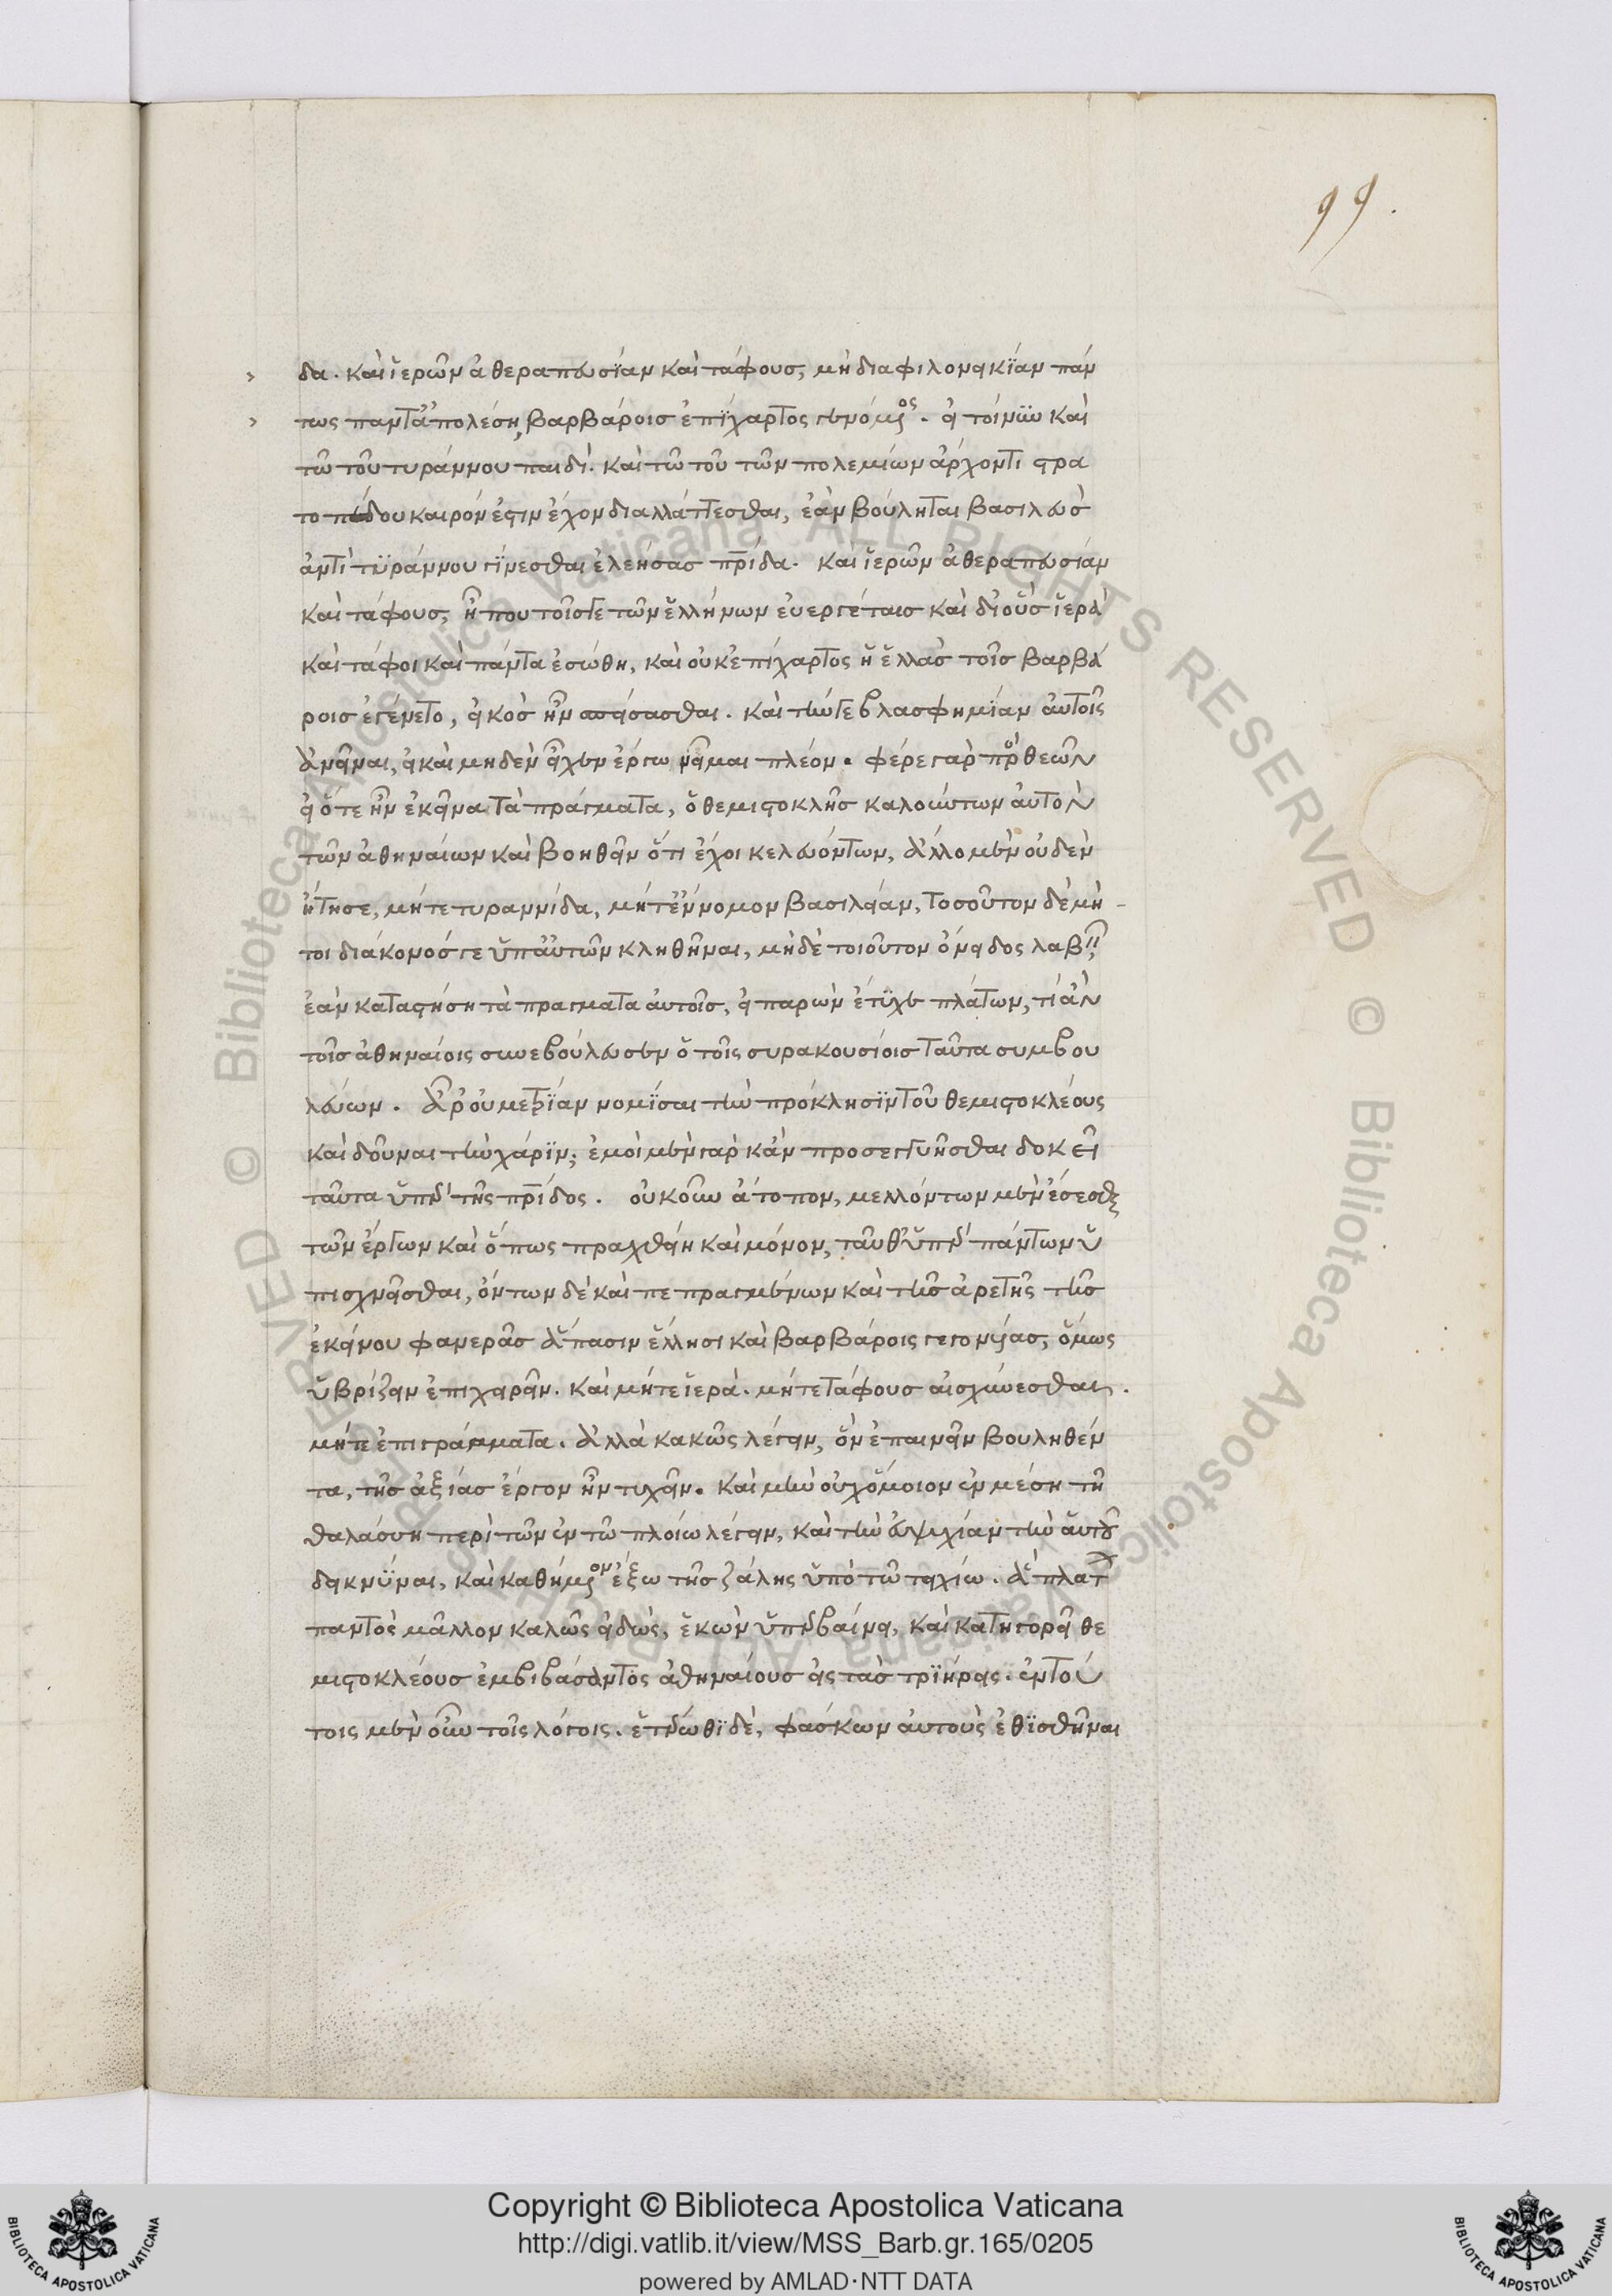 99.
δα. καὶ ἱερῶν ἀθεραπευσίαν καὶ τάφους, μὴ διαφιλονεικίαν πάν
τως πάντ᾽ ἀπολέση, βαρβάροις ἐπίχαρτος γενόμενος. εἰ τοίνυν καὶ
τῶ τοῦ τυράννου παιδί. καὶ τῶ τοῦ τῶν πολεμίων ἄρχοντι στρα
τοπέδου καιρόν ἐστιν ἔχον διαλλάττεσθαι, ἐὰν βούληται βασιλεὺς
ἀντὶ τυράννου γίνεσθαι ἐλεήσας πρίδα. καὶ ἱερῶν ἀθεραπευσίαν
καὶ τάφους, ἦ που τοῖς γε τῶν ἑλλήνων εὐεργέταις καὶ δι᾽ οὓς ἱερὰ
καὶ τάφοι καὶ πάντα ἐσώθη, καὶ οὐκ ἐπίχαρτος ἡ ἑλλὰς τοῖς βαρβά
ροις ἐγένετο, εἰκὸς ἦν σπείσασθαι. καὶ τήν γε βλασφημίαν αὐτοῖς
ἀνεῖναι, εἰ καὶ μηδὲν εἶχεν ἔργω νεῖμαι πλέον. φέρε γὰρ πρὸ θεῶν
εἰ ὅτε ἦν ἐκεῖνα τὰ πράγματα, ὁ θεμιστοκλῆς καλούντων αὐτὸν
τῶν ἀθηναίων καὶ βοηθεῖν ὅτι ἔχοι κελευόντων, ἄλλο μὲν οὐδὲν
ἤτησε, μήτε τυραννίδα, μήτ᾽ ἔννομον βασιλείαν, τοσοῦτον δὲ μή
τοι διάκονός γε ὑπ᾽ αὐτῶν κληθῆναι, μηδὲ τοιοῦτον ὄνειδος λαβεῖν,
ἐὰν καταστήση τὰ πραγματα αὐτοῖς, εἰ παρὼν ἔτυχε πλάτων, τί ἂν
τοῖς ἀθηναίοις συνεβούλευσεν ὁ τοῖς συρακουσίοις ταῦτα συμβου
λεύων. ἆρ᾽ οὐ μετρίαν νομίσαι τὴν πρόκλησιν τοῦ θεμιστοκλέους
καὶ δοῦναι τὴν χάριν; ἐμοὶ μὲν γὰρ κἂν προσεγγυῆσθαι δοκεῖ
ταῦτα ὑπὲρ τῆς πρίδος. οὐκοῦν ἄτοπον, μελλόντων μὲν ἔσεσθαι
τῶν ἔργων καὶ ὅπως πραχθείη καὶ μόνον, ταῦθ᾽ ὑπὲρ πάντων ὑ
πισχνεῖσθαι, ὄντων δὲ καὶ πεπραγμένων καὶ τῆς ἀρετῆς τῆς
ἐκείνου φανερᾶς ἅπασιν ἕλλησι καὶ βαρβάροις γεγονυίας, ὅμως
ὑβρίζειν ἐπιχειρεῖν. καὶ μήτε ἱερὰ. μήτε τάφους αἰσχύνεσθαι.
μήτε ἐπιγράμματα. ἀλλὰ κακῶς λέγειν, ὃν ἐπαινεῖν βουληθέν
τα, τῆς ἀξίας ἔργον ἦν τυχεῖν. καὶ μὴν οὐχ ὅμοιον ἐν μέση τῆ
θαλάσση περὶ τῶν ἐν τῶ πλοίω λέγειν, καὶ τὴν εὐψυχίαν τὴν αὑτοῦ
δεικνύναι, καὶ καθήμενον ἔξω τῆς ζάλης ὑπὸ τῶ τειχίω. ἃ πλάτων
παντὸς μᾶλλον καλῶς εἰδὼς, ἑκὼν ὑπερβαίνει, καὶ κατηγορεῖ θε
μιστοκλέους ἐμβιβάσαντος ἀθηναίους εἰς τὰς τριήρεις. ἐν τού
τοις μὲν οὖν τοῖς λόγοις. ἑτέρωθι δὲ, φάσκων αὐτοὺς ἐθισθῆναι
Copyright © Biblioteca Apostolica Vaticana
http://digi.vatlib.it/view/MSS_Barb.gr.165/0205
powered by AMLAD·NTT DATA